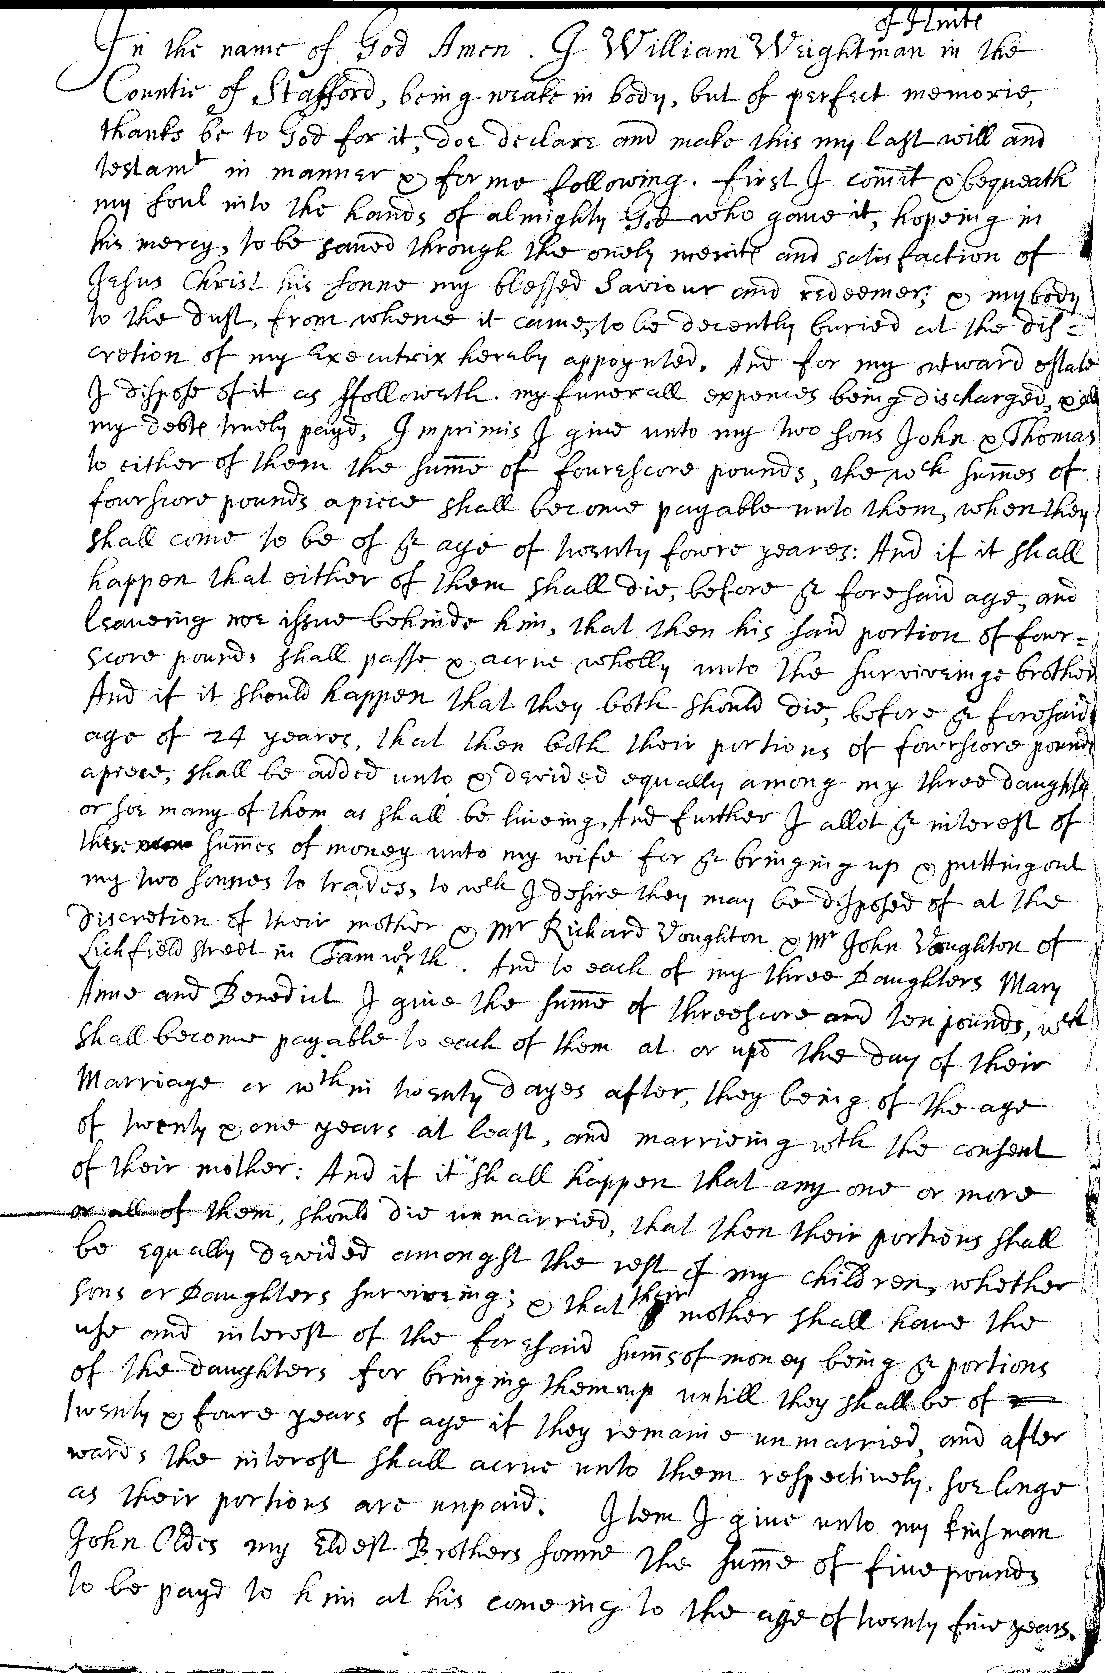 of Flints
In the name of God Amen. I William Weightman in the
Countie of Stafford, being weake in body, but of perfect memorie,
thanks be to God for it, doe declare and make this my last will and
testamt in manner & forme following. First I comit & bequeath
my soul into the hands of almighty God who gave it, hopeing in
his mercy, to be saued through the onely merits and satisfaction of
Jesus Christ his sonne my blessed Saviour and redeemer; & my body
to the dust, from whence it came, to be decently buried at the dis=
cretion of my Executrix hereby appoynted. And for my outward estate
I dispose of it as ffolloweth. my funerall expences being discharged, & all
my debts truely payd, Imprimis I giue unto my two sons John & Thomas
to either of them the sume of fourescore pounds, the wch sumes of
fourscore pounds apiece shall become payable unto them, when they
shall come to be of ye age of twenty foure yeares: And if it shall
happen that either of them shall die, before ye foresaid age, and
leaueing noe issue behinde him, that then his said portion of four=
score pounds shall passe & acrue wholly unto the surviveinge brother
And if it should happen that they both should die, before ye foresaid
age of 24 yeares, that then both their portions of fourscore pounds
apiece, shall be added unto & devided equally among my three daughtrs
or soe many of them as shall be liueing, And further I allot ye interest of
these sumes of money unto my wife for ye bringing up & putting out
my two sonnes to trades, to wch I desire they may be disposed of at the
discretion of their mother & Mr Richard Voughton & Mr John Voughton of
Lichfield street in Tamworth. And to each of my three Daughters Mary
Anne and Benedict I giue the sume of threescore and ten pounds, wch
shall become payable to each of them at or upō the day of their
Marriage or wthin twenty dayes after, they being of the age
of twenty & one years at least, and marrieing wth the consent
of their mother: And if it shall happen that any one or more
or all of them, should die unmarried, that then their portions shall
be equally devided amongst the rest of my children, whether
sons or Daughters surviveing; & that their mother shall haue the
use and interest of the foresaid sums of money being ye portions
of the daughters for bringing them up untill they shall be of
twenty & foure years of age if they remaine unmarried, and after
wards the interest shall acrue unto them respectively, soe longe
as their portions are unpaid. Item I giue unto my kinsman
John Oldes my Eldest Brothers sonne the sume of fiue pounds
to be payd to him at his comeing to the age of twenty fiue years.